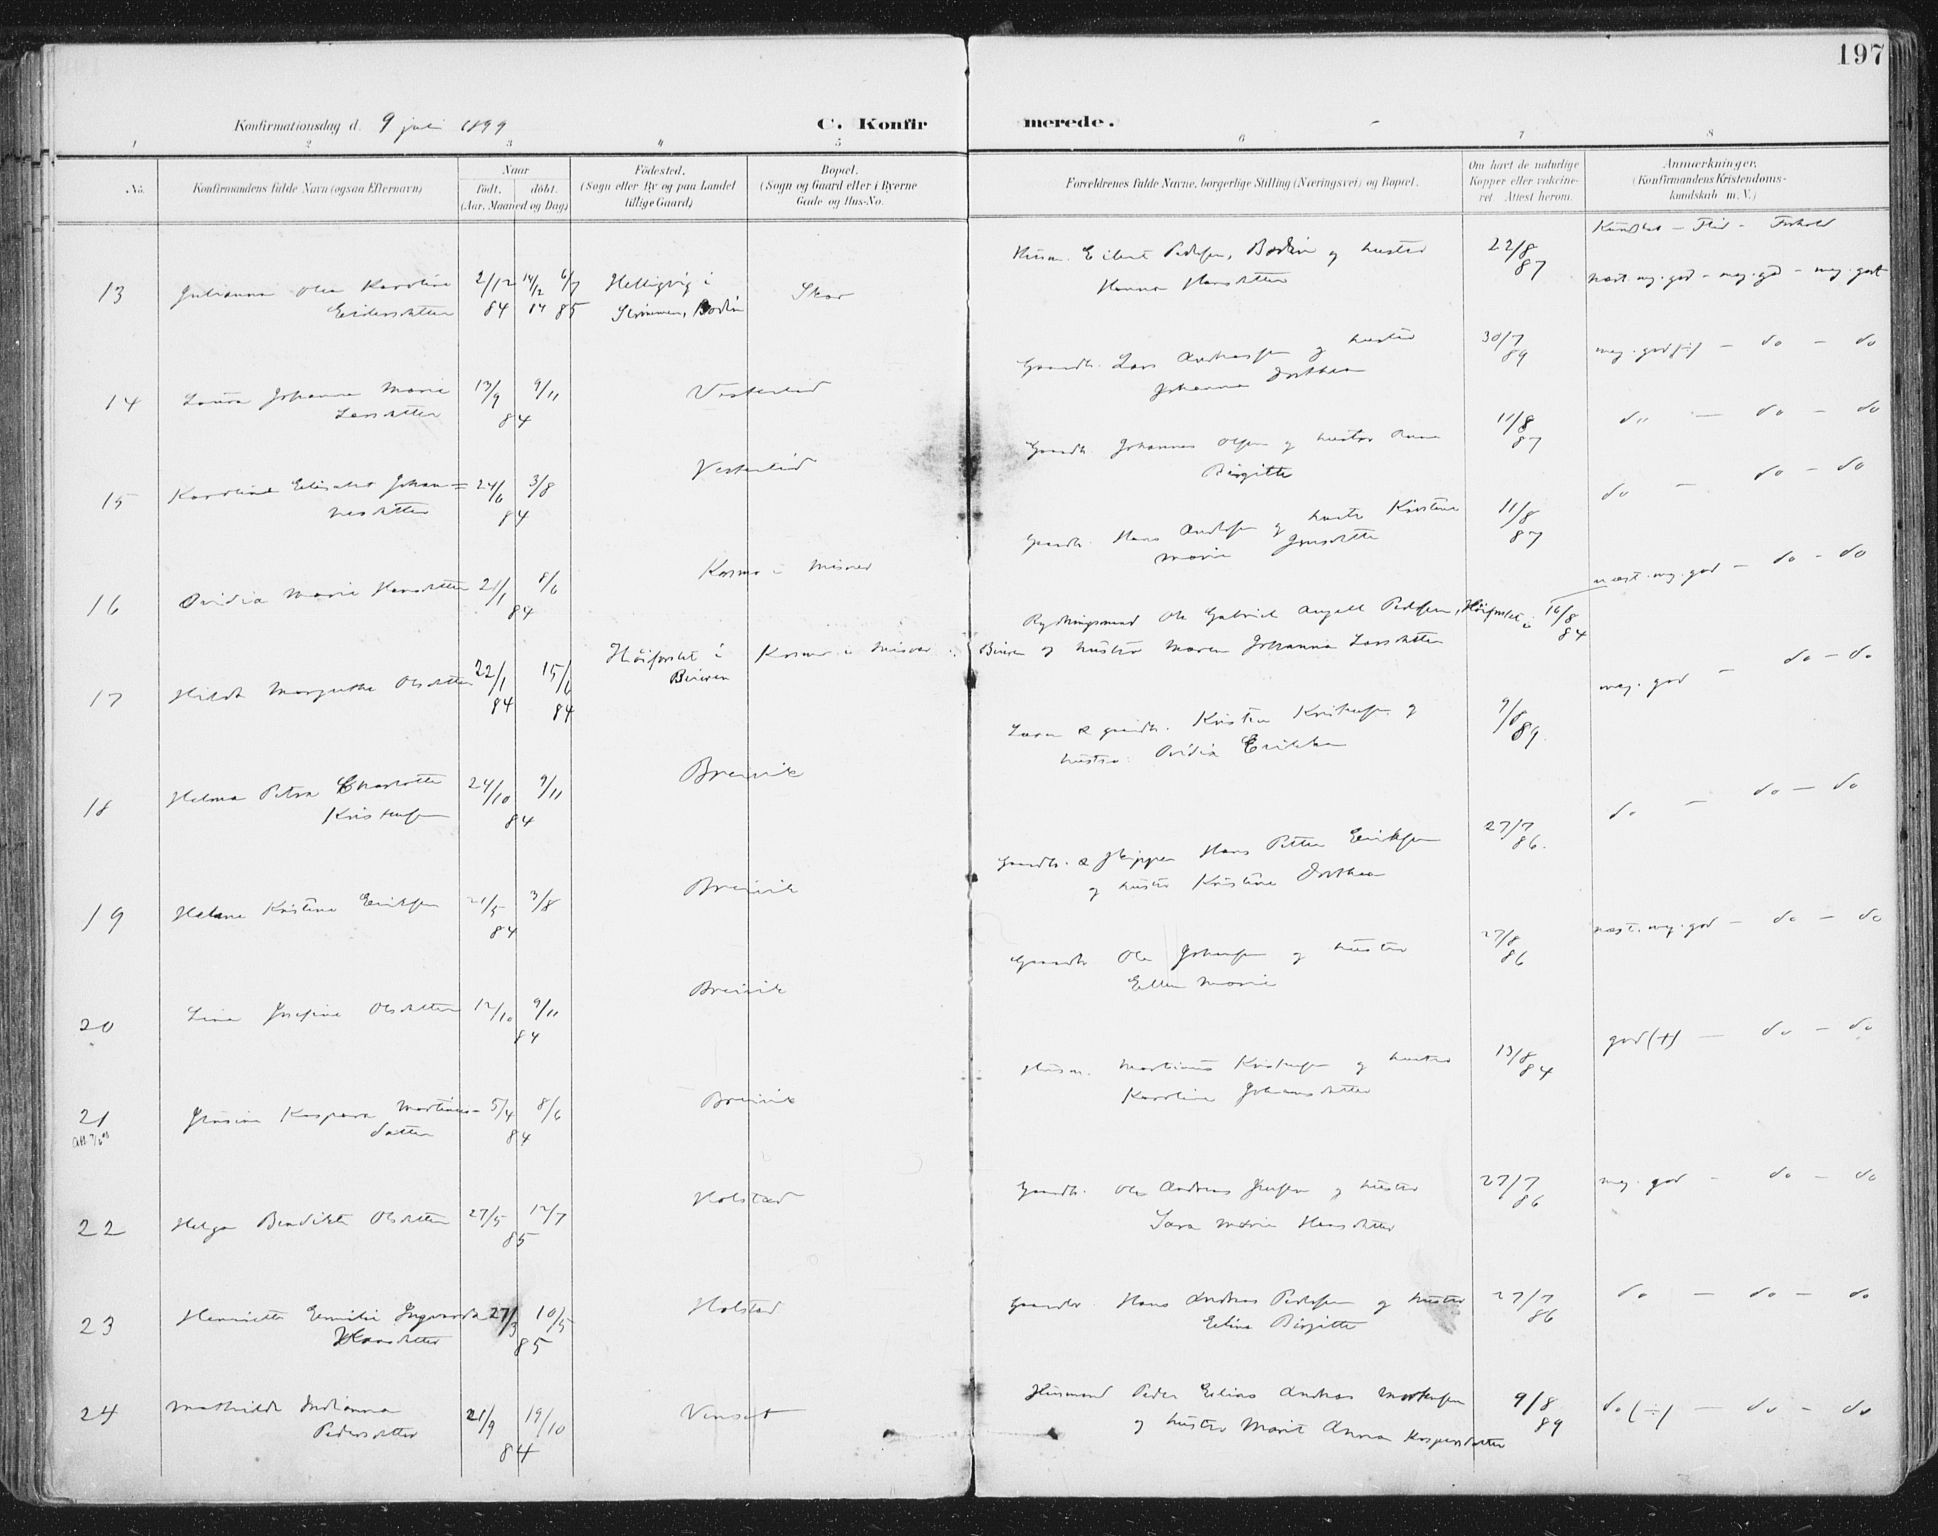 197
Konfirmationsdag d. 9 juli 1899
C. Konfirmerede.
1 2 3 4 5 6 7 8
No.
Konfirmandens fulde Navn (ogsaa Efternavn)
Naar
født. døbt.
(Aar, Maaned og Dag)
Födested.
(Sogn eller By og paa Landet
tillige Gaard)
Bopæl.
(Sogn og Gaard eller i Byerne
Gade og Hus-No.
Forældrenes fulde Navne, borgerlige Stilling (Næringsvei) og Bopæl.
Om havt de naturlige
Kopper eller vakcine-
ret. Attest herom.
Anmærkninger.
(Konfirmandens Kristendoms-
kundskab m. V.)
Kundskab - Flid - Forhold
13 Julianna Olea Karoline
Eilersdatter
2/12 84 14/12 84 6/7 85
Helligvig i
Strømmen, Bodin
Skar
Husm. Eilert Pedersen, Bodin og hustru
Hanna Hansdatter
22/8 87
næst. mg. god - meg. god - meg. godt
14 Laura Johanna Marie
Larsdatter
13/9 9/11 84
Vesterlid
Gaardb. Lars Andreassen og hustru
Johanna Dorthea
30/7 89
meg. god (÷) - do - do
15 Karoline Elisabet Johan=
nesdatter
24/6 3/8 84
Vesterlid
Gaardb. Johannes Olsen og hustru Anna
Birgitte
11/8 87
do - do - do
16 Ovidia Marie Hansdatter
21/1 8/6 84
Kosmo i Misvær
Gaardb. Hans Andersen og hustru Kristine
Marie Jensdatter
11/8 87
do - do - do
17 Hilda Margrethe Olsdatter
22/1 84 15/6 84
Høiforslet i
Beieren
Kosmo i Misvær
Rydningsmand Ole Gabriel Angell Pedersen, Høiforslet i
Beieren og hustru Maren Johanna Larsdatter
16/8 84
næst. mg. god - do - do
18 Helma Petra Charlotte
Kristensen
24/10 9/11 84
Breivik
& gaardb. Kristen Kristensen og
hustru Ovidia Erikka
9/8 89.
meg. god - do - do
19 Helene Kristine Eriksen
21/5 3/8 84
Breivik
Gaardb. & Skipper Hans Petter Eriksen
og hustru Kristine Dorthea
27/7 86.
do - do - do
20 Lina Josefine Olsdatter
12/10 9/11 84
Breivik
Gaardb. Ole Johansen og hustru
Ellen Marie
27/8 86
næst. mg. god - do - do
21 Jensine Kaspara Martinus-
datter
5/4 8/6 84
Breivik
Husm. Martinus Kristensen og hustru
Karoline Johansdatter
13/8 84
god (+) - do - do
22 Helga Bendikte Olsdatter
27/5 12/7 85
Holstad
Gaardb. Ole Andreas Jensen og hustru
Sara Marie Hansdatter
27/7 86
meg. god - do - do
23 Henriette Emilie Ingvarda
Hansdatter
27/3 10/5 85
Holstad
Gaardbr. Hans Andreas Pedersen og hustru
Elina Birgitte
27/7 86
do - do - do
24 Mathilde Indianna
Pedersdatter
21/9 19/10 84
Venset
Husmand Peder Elias Andreas Mortensen
og hustru Marit Anna Kaspersdatter
9/8 89
do (÷) - do - do